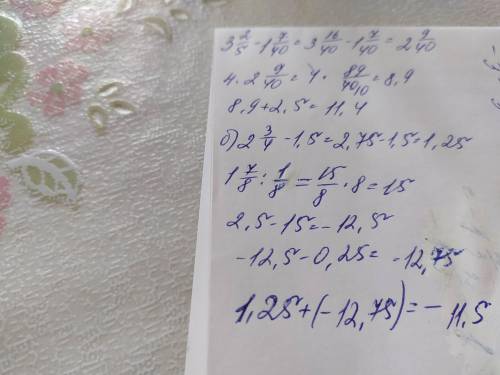 3 2/5 - 1 7/40 = 3 16/40 - 1 7/40 = 2 9/40
4 · 2 9/40 = 4 · 89/40 10 = 8,9
8,9 + 2,5 = 11,4
б) 2 3/4 - 1,5 = 2,75 - 1,5 = 1,25
1 7/8 : 1/8 = 15/8 · 8 = 15
2,5 - 15 = - 12,5
-12,5 - 0,25 = -12,75
1,25 + (-12,75) = - 11,5